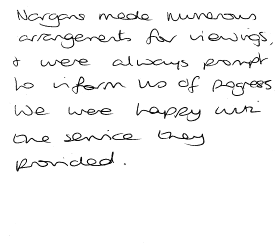 Nargans made numerous
arrangements for viewings,
& were always prompt
to inform us of progress
We were happy with
the service they
provided.